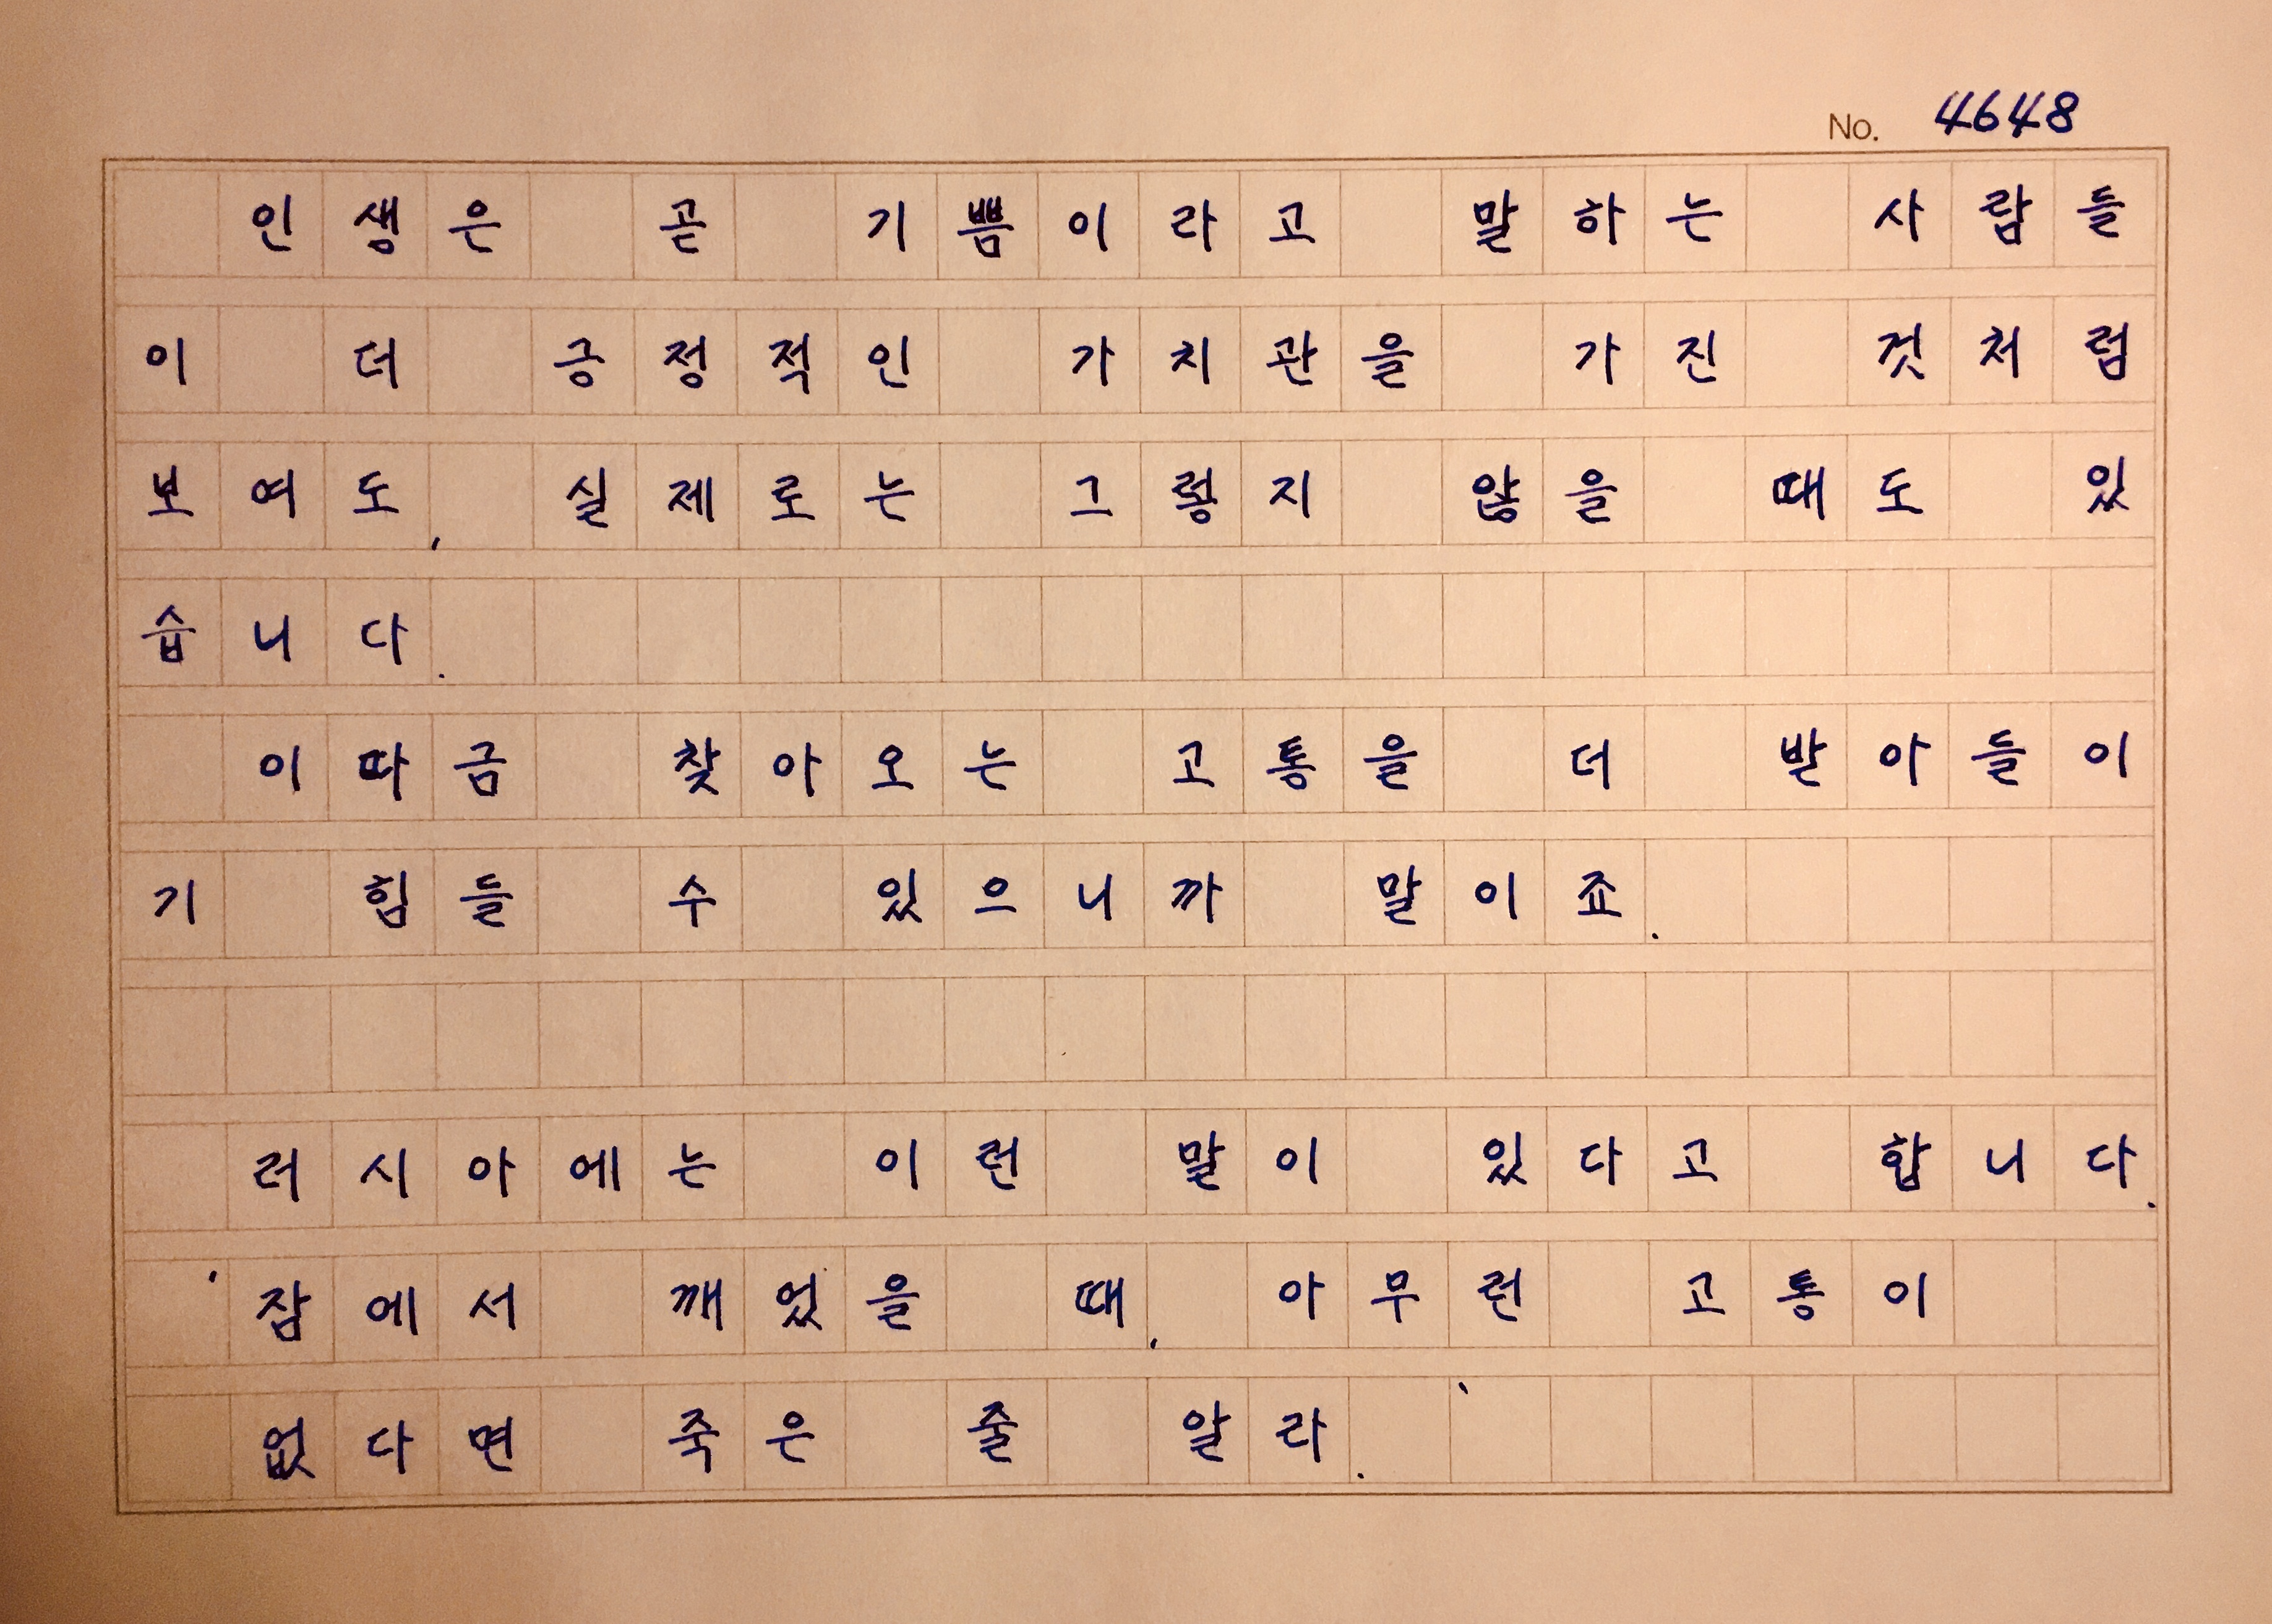 No. 4648
인생은 곧 기쁨이라고 말하는 사람들
이 더 긍정적인 가치관을 가진 것처럼
보여도, 실제로는 그렇지 않을 때도 있
습니다.
이따금 찾아오는 고통을 더 받아들이
기 힘들 수 있으니까 말이죠.
러시아에는 이런 말이 있다고 합니다.
'잠에서 깨었을 때, 아무런 고통이
없다면 죽은 줄 알라.'